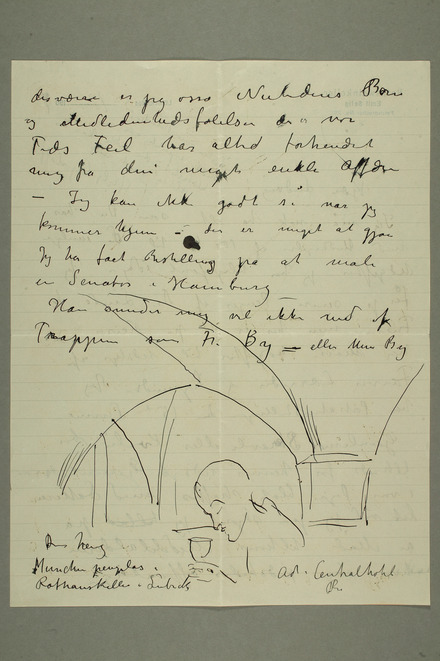 desværre er jeg osse Nutidens Barn
og Medlidenhedsfølelsen er vor
Tids Feil har altid forhindret
mig fra den meget enkle
– Jeg kan ikke godt si naar jeg
kommer hjem – der er meget at gjøre
Jeg har faat Bestilling paa at male
en Senator i Hamburg –
Han mig vil ikke ned af
Trappen som Fr. By – eller Mm By
Münchens
Rathauskeller i Lübeck
Ad. Centralhotel